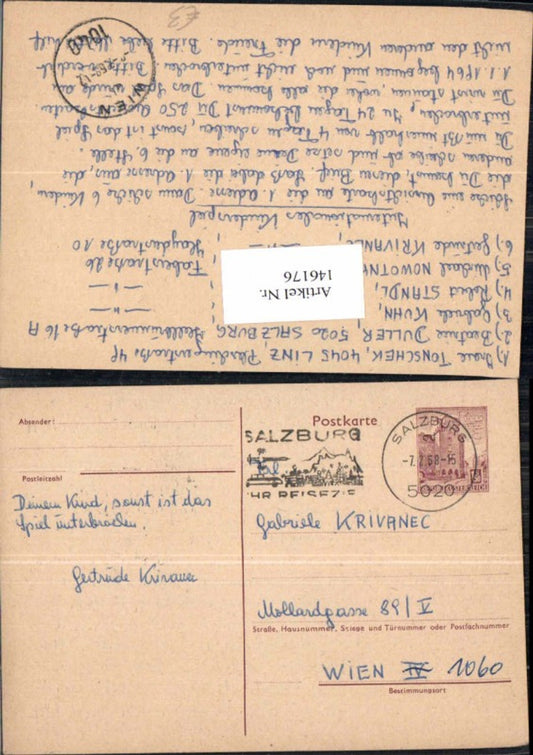 1) Irene TONSCHEK, 4045 LINZ, Pleschingerstraße 4P
2) Beatrice DULLER, 5020 SALZBURG, Hellbrunnerstraße 16 A
3) Gabriele KUHN, — " —
4) Robert STANDL, — " —
5) Michael NOWOTNY, Faberstraße 26
6) Gertrude KRIVANEC, Haydnstraße 10
Internationales Kinderspiel
Schicke eine Ansichtskarte an die 1. Adresse. Dann schicke 6 Kindern,
die Du kennst, diesen Brief. Laß dabei die 1. Adresse die aus, die
anderen schiebe ab und setze Deine eigene an die 6. Stelle.
Du mußt innerhalb von 4 Tagen schreiben, sonst ist das Spiel
unterbrochen. In 24 Tagen bekommst Du 250 Ansichtskarten.
Du wirst staunen, woher die alle kommen. Das Spiel wurde am
1.1.1964 begonnen und noch nicht unterbrochen. Bitte verdirb
nicht den anderen Kindern die Freude. Bitte
WIEN
1040
£3
Artikel Nr.
146176
Absender:
Postkarte
SALZBURG
IHR REISEZIEL
SALZBURG
-7.2.68-15
5020
Postleitzahl
Deinem Kind, sonst ist das
Spiel unterbrochen.
Gertrude Krivanec
Gabriele KRIVANEC
Mollardgasse 89/V
Straße, Hausnummer, Stiege und Türnummer oder Postfachnummer
WIEN 1060
Bestimmungsort